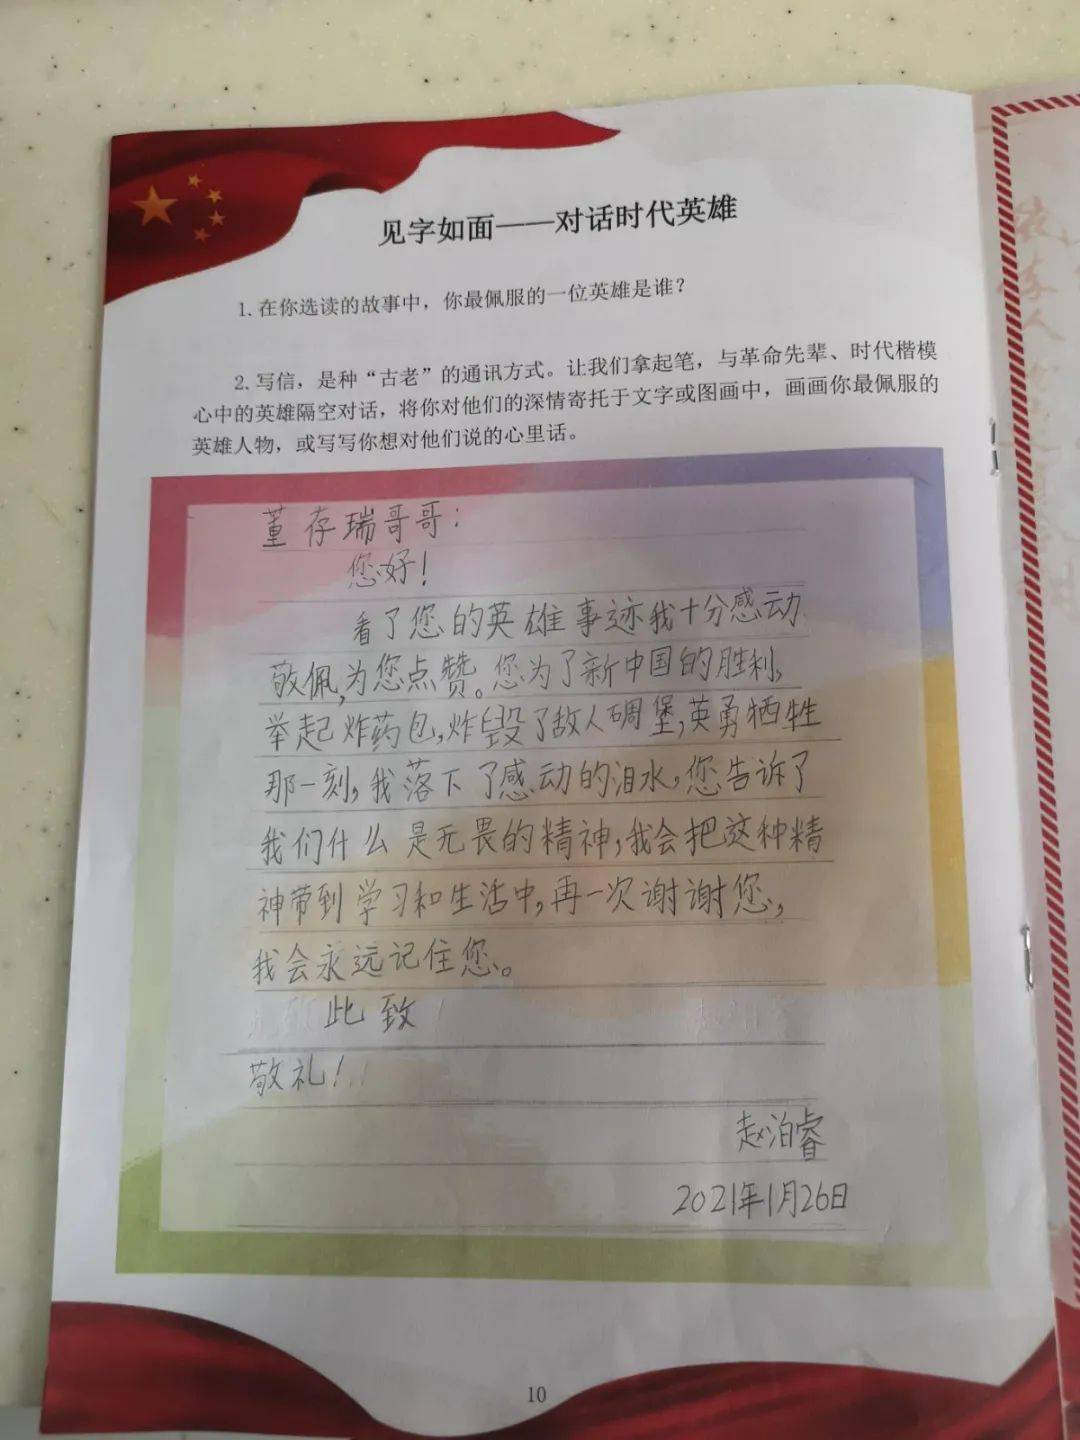 见字如面——对话时代英雄
1. 在你选读的故事中，你最佩服的一位英雄是谁？
2. 写信，是种“古老”的通讯方式。让我们拿起笔，与革命先辈、时代楷模
心中的英雄隔空对话，将你对他们的深情寄托于文字或图画中，画画你最佩服的
英雄人物，或写写你想对他们说的心里话。
董存瑞哥哥：
您好！
看了您的英雄事迹我十分感动
敬佩，为您点赞。您为了新中国的胜利，
举起炸药包，炸毁了敌人碉堡，英勇牺牲
那一刻，我落下了感动的泪水，您告诉了
我们什么是无畏的精神，我会把这种精
神带到学习和生活中，再一次谢谢您，
我会永远记住您。
此致
敬礼！
赵泊睿
2021年1月26日
10